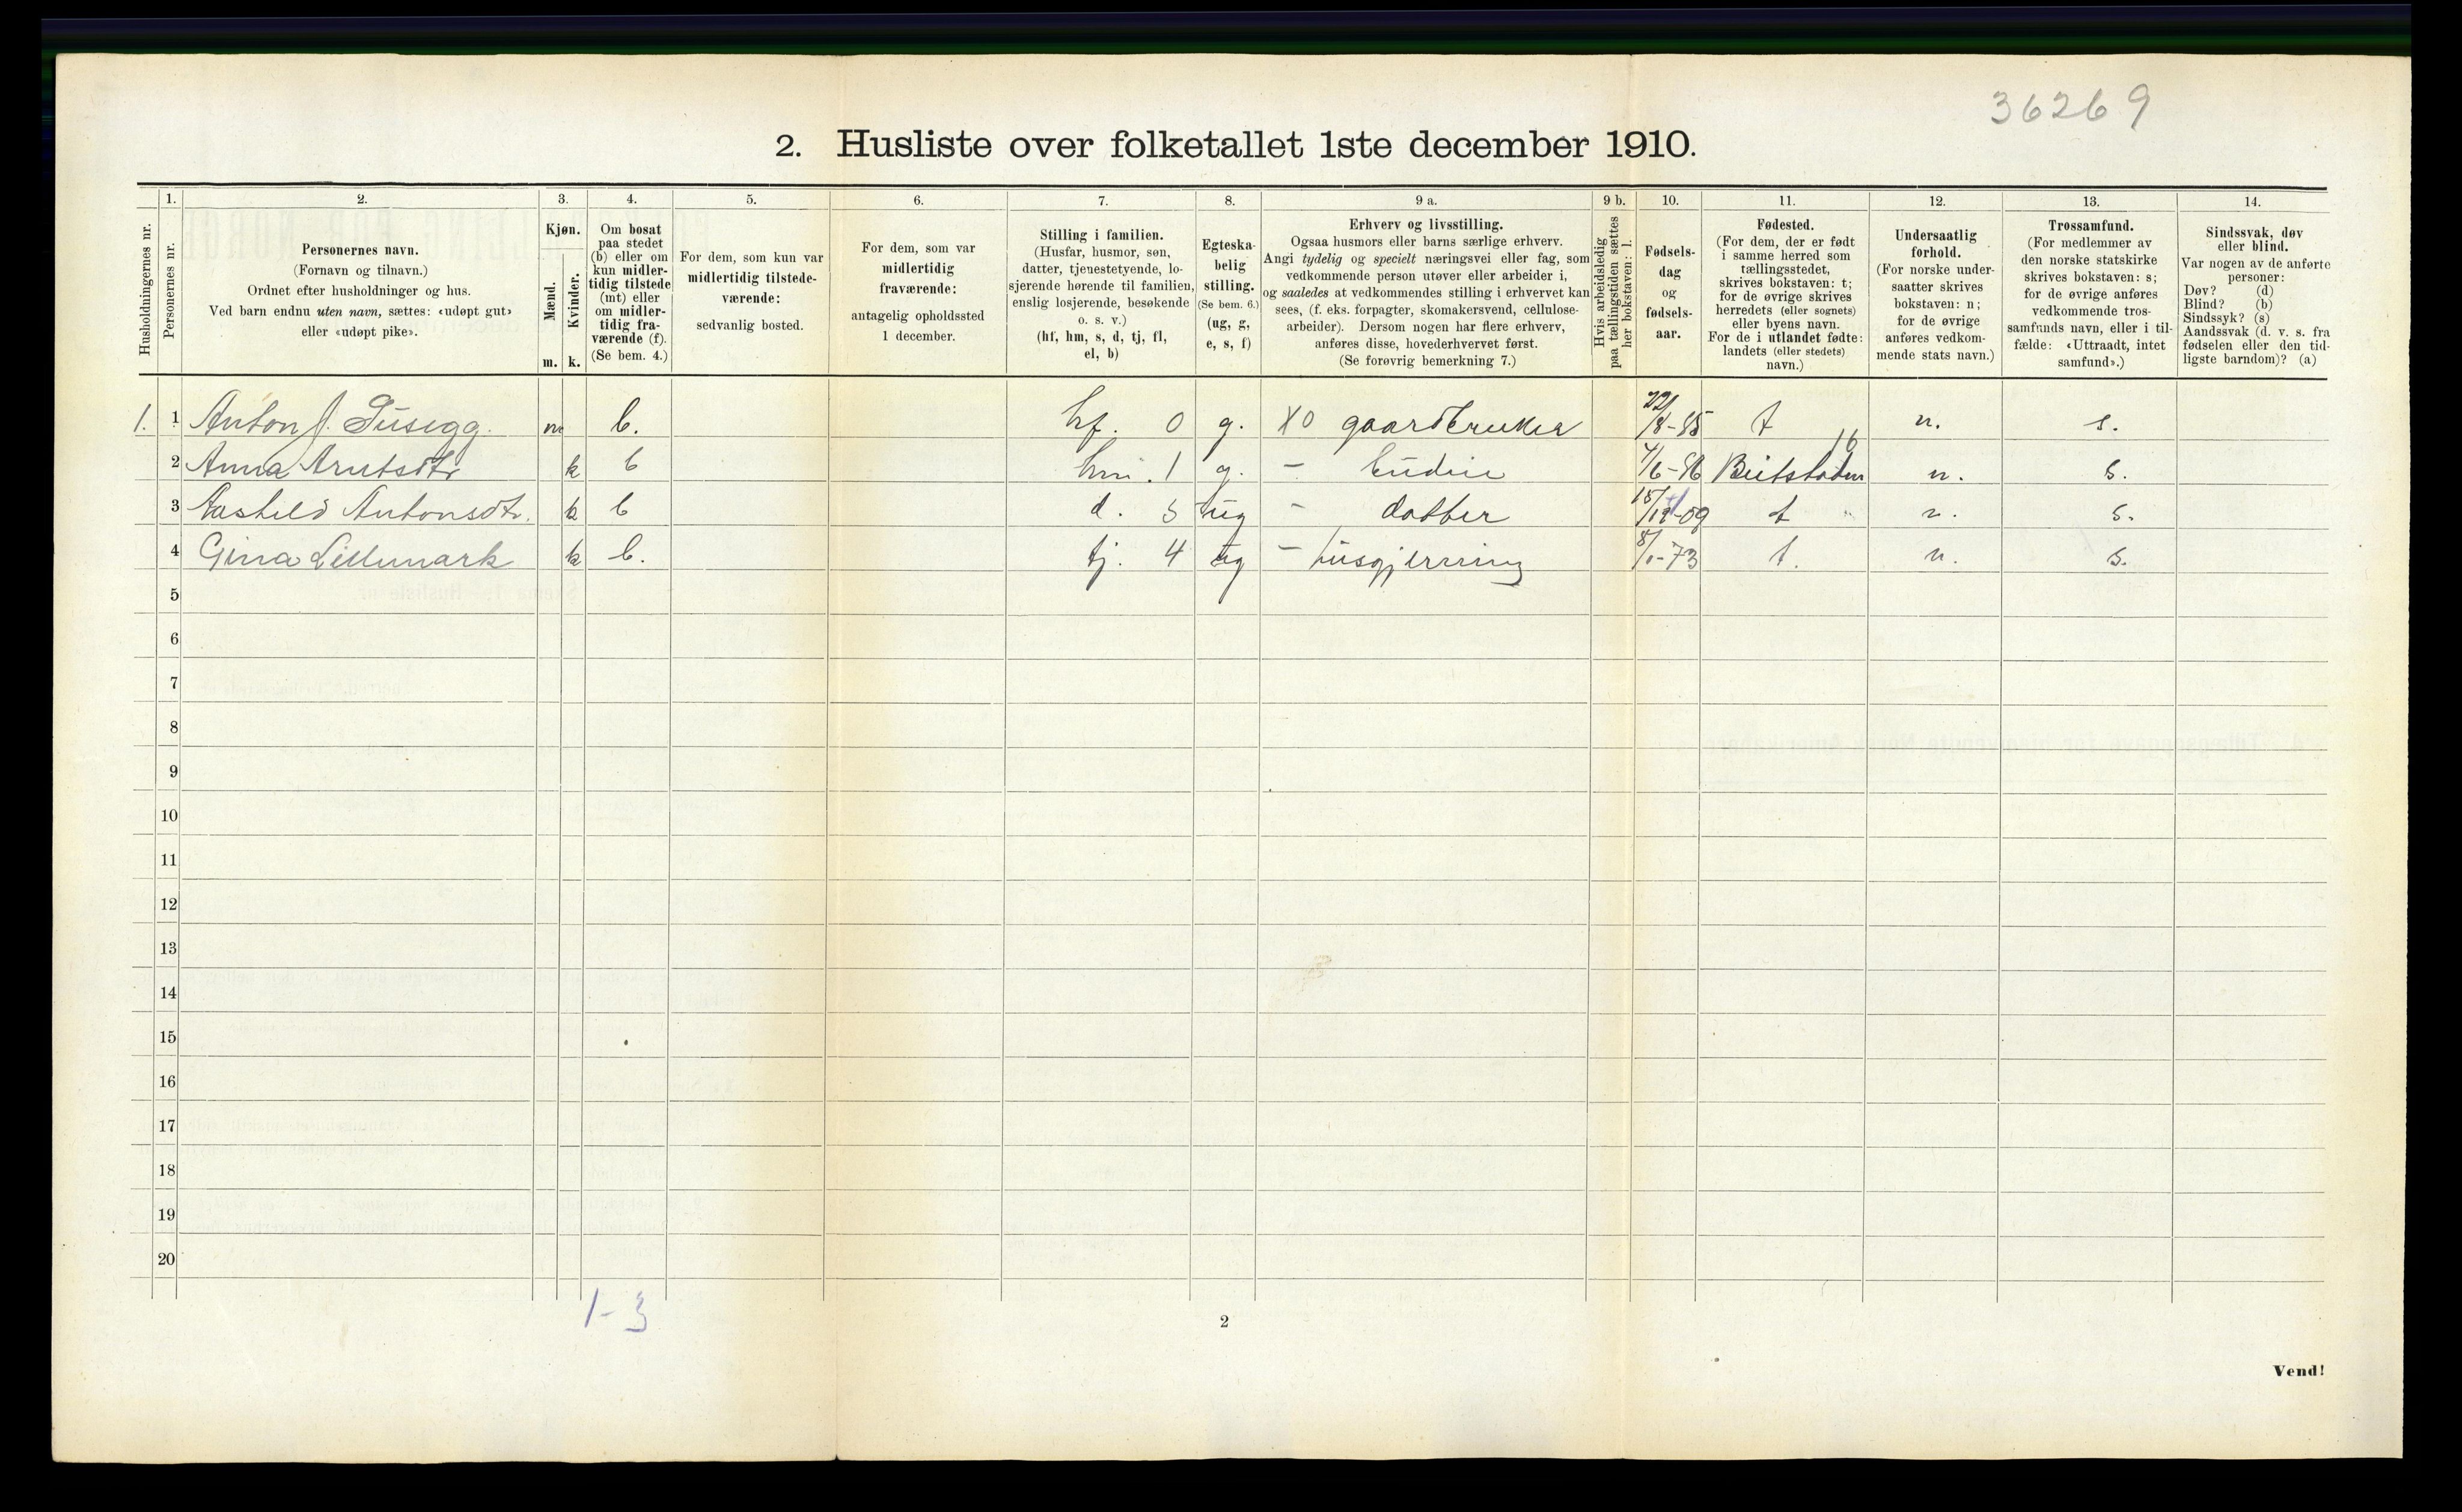 36269
2. Husliste over folketallet 1ste december 1910.
Husholdningernes nr.
1. Personernes nr.
2. Personernes navn.
(Fornavn og tilnavn.)
Ordnet efter husholdninger og hus.
Ved barn endnu uten navn, sættes: «udøpt gut»
eller «udøpt pike».
3. Kjøn.
Mænd. m.
Kvinder. k.
4. Om bosat
paa stedet
(b) eller om
kun midler-
tidig tilstede
(mt) eller
om midler-
tidig fra-
værende (f).
(Se bem. 4.)
5. For dem, som kun var
midlertidig tilstede-
værende:
sedvanlig bosted.
6. For dem, som var
midlertidig
fraværende:
antagelig opholdssted
1 december.
7. Stilling i familien.
(Husfar, husmor, søn,
datter, tjenestetyende, lo-
sjerende hørende til familien,
enslig losjerende, besøkende
o. s. v.)
(hf, hm, s, d, tj, fl,
el, b)
8. Egteska-
belig
stilling.
(Se bem. 6.)
(ug, g,
e, s, f)
9 a. Erhverv og livsstilling.
Ogsaa husmors eller barns særlige erhverv.
Angi tydelig og specielt næringsvei eller fag, som
vedkommende person utøver eller arbeider i,
og saaledes at vedkommendes stilling i erhvervet kan
sees, (f. eks. forpagter, skomakersvend, cellulose-
arbeider). Dersom nogen har flere erhverv,
anføres disse, hovederhvervet først.
(Se forøvrig bemerkning 7.)
9 b. Hvis arbeidsledig
paa tællingstiden sættes
her bokstaven: l.
10. Fødsels-
dag
og
fødsels-
aar.
11. Fødested.
(For dem, der er født
i samme herred som
tællingsstedet,
skrives bokstaven: t;
for de øvrige skrives
herredets (eller sognets)
eller byens navn.
For de i utlandet fødte:
landets (eller stedets)
navn.)
12. Undersaatlig
forhold.
(For norske under-
saatter skrives
bokstaven: n;
for de øvrige
anføres vedkom-
mende stats navn.)
13. Trossamfund.
(For medlemmer av
den norske statskirke
skrives bokstaven: s;
for de øvrige anføres
vedkommende tros-
samfunds navn, eller i til-
fælde: «Uttraadt, intet
samfund».)
14. Sindssvak, døv
eller blind.
Var nogen av de anførte
personer:
Døv? (d)
Blind? (b)
Sindssyk? (s)
Aandssvak (d. v. s. fra
fødselen eller den tid-
ligste barndom)? (a)
1. 1 Anton J. m b. hf. 0 g. X0 gaardbruker 22/8-85 t n. s.
2 Anna k b hm. 1 g. - 7/6-86 Beitstaden 16 n. s.
3 Aashild Antonsdtr. k b d. 5 ug - datter t n. s.
4 Gina Lillemark k b. tj. 4 ug - husgjerning 8/1-73 t. n. s.
5
6
7
8
9
10
11
12
13
14
15
16
17
18
19
20
1-3
2
Vend!